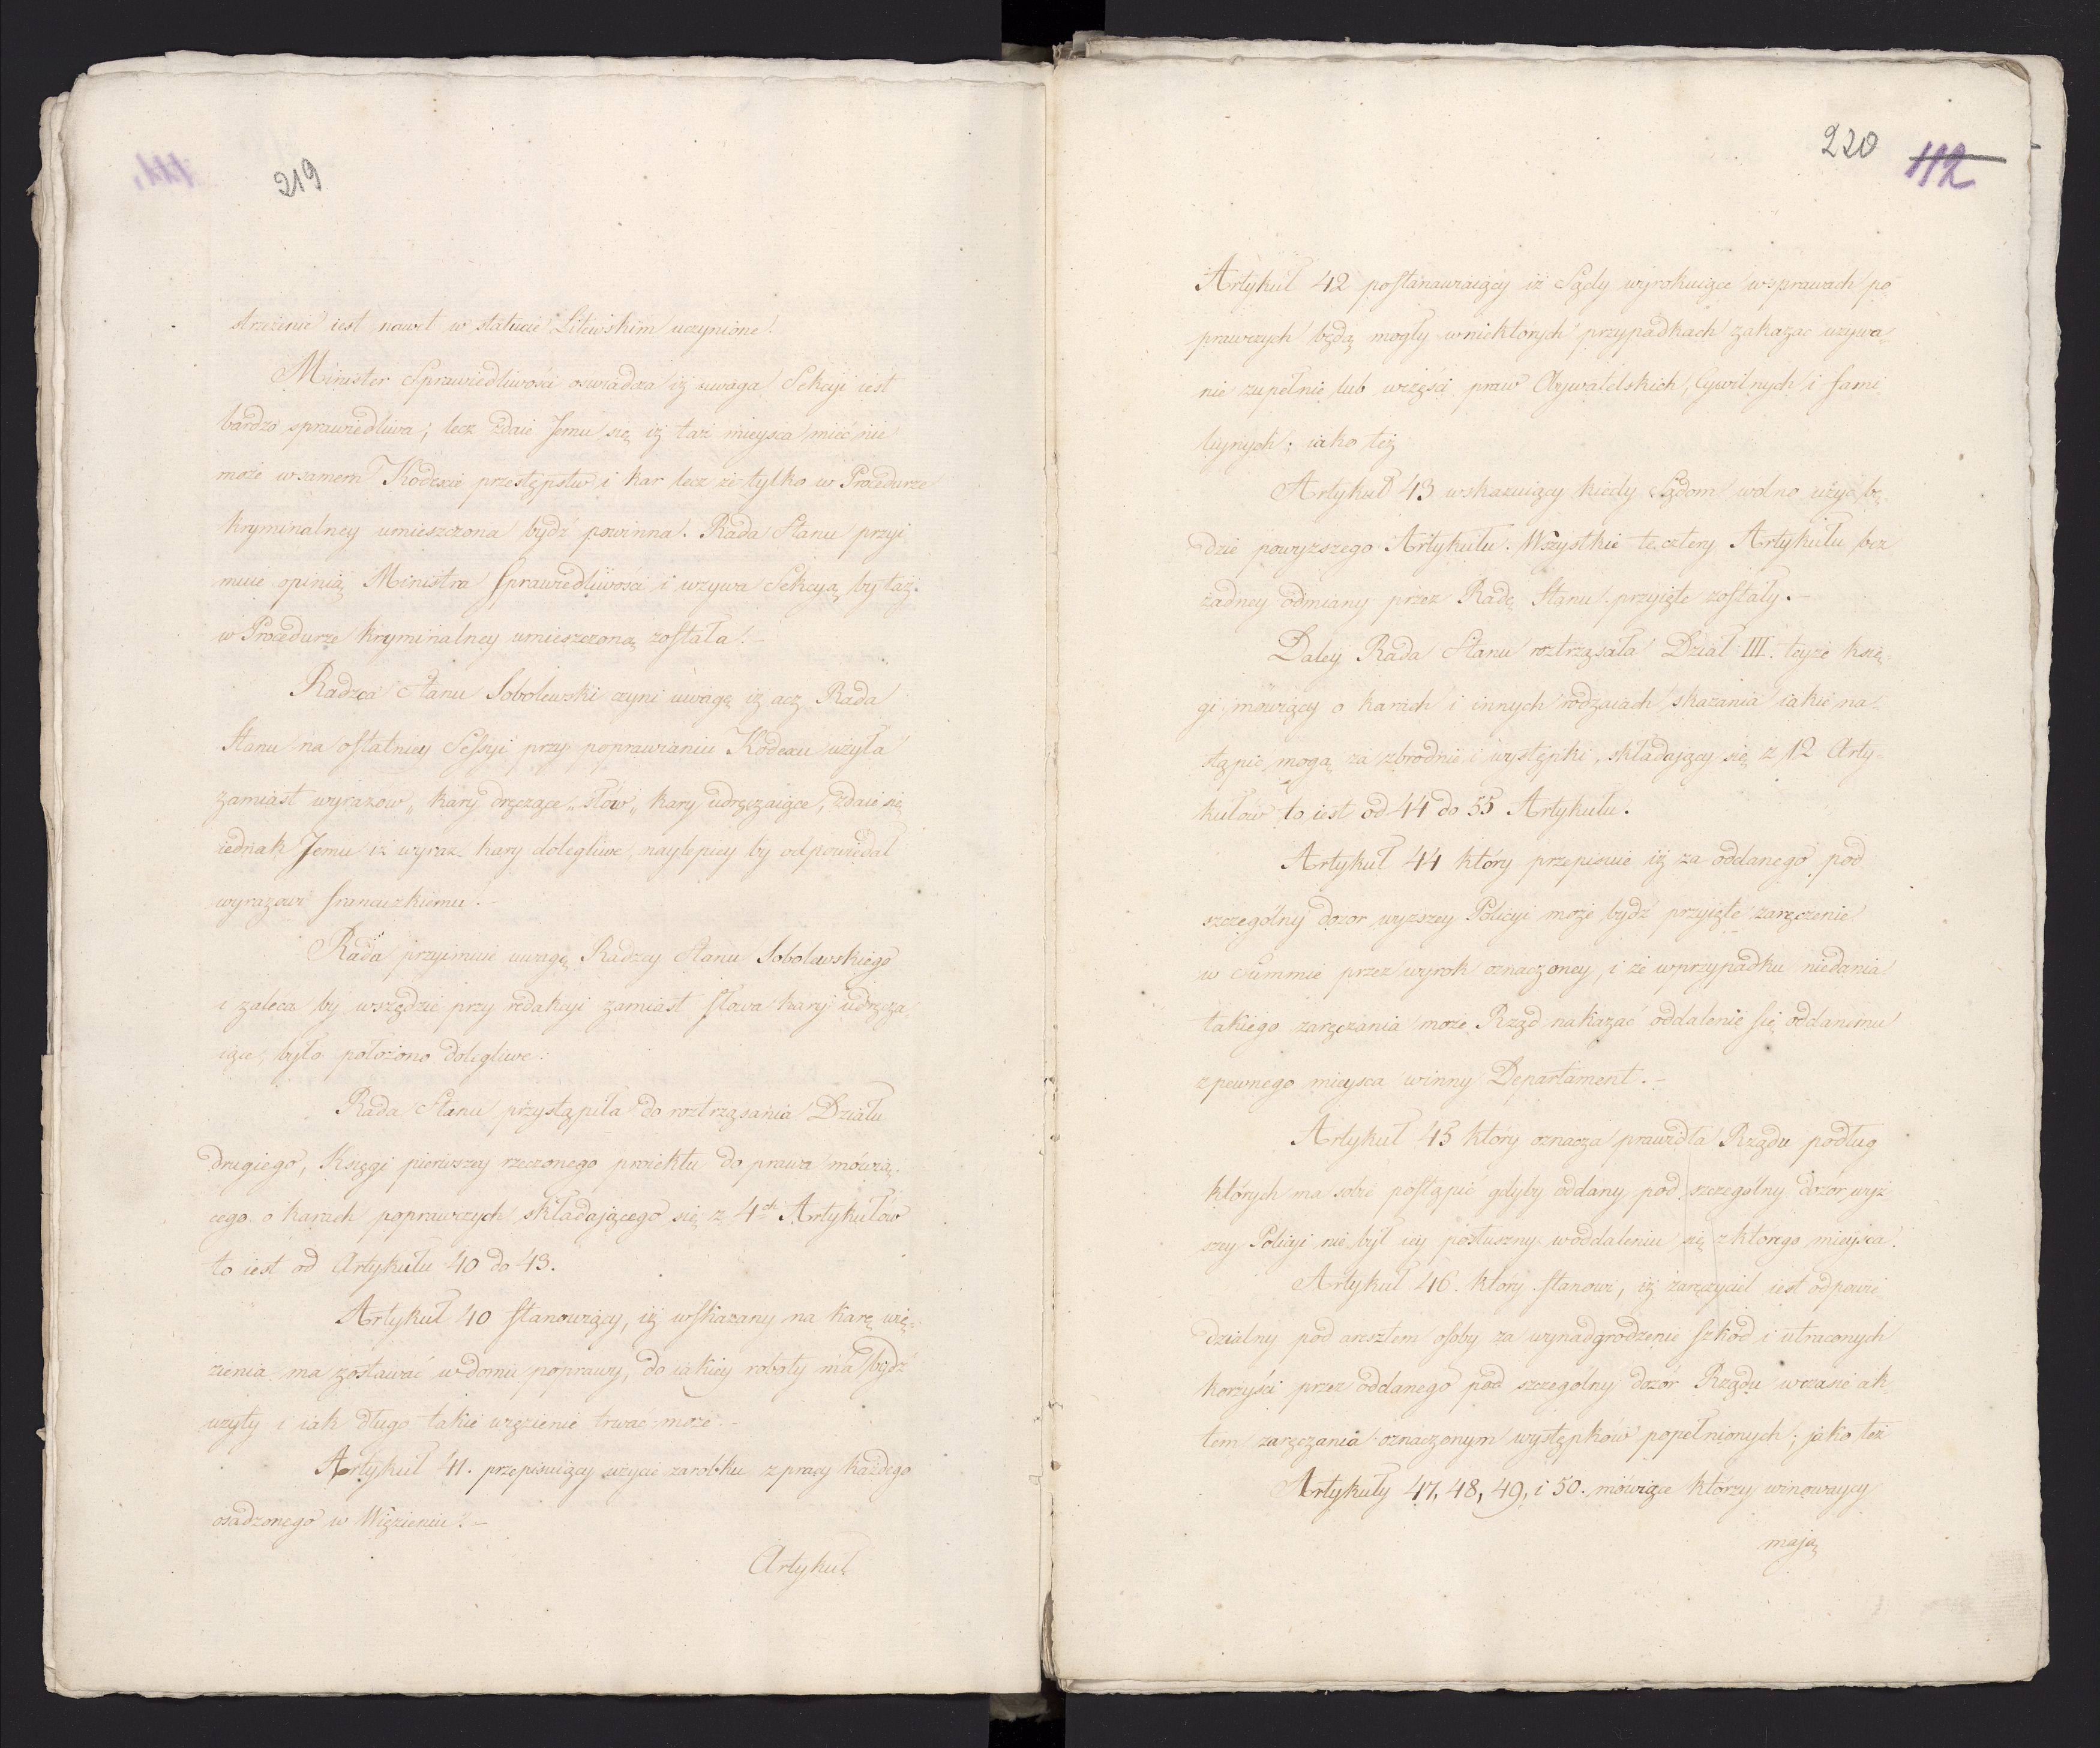 219
strzżenie iest nawet w statucie Litewskim uczynione.
Minister Sprawiedliwości oswiadcza iż uwaga Sekcyi iest
bardzo sprawiedliwa; lecz zdaie Jemu się iż taż mieysca mieć nie
może w samem Kodexie przestępstw i kar lecz że tylko w Procedurze
kryminalney umieszczona bydź powinna. Rada Stanu przyi
muie opinią Ministra Sprawiedliwości i wzywa Sekcyą by taż
w Procedurze kryminalney umieszczoną została. –
Radzca Stanu Sobolewski czyni uwagę iż acz Rada
Stanu na ostatniey Sessyi przy poprawianiu Kodexu użyła
zamiast wyrazow „kary dręczące„ słów „kary udręczaiące, zdaie się
iednak Jemu iż wyraz kary dolegliwe naylepiey by odpowiedał
wyrazowi francuzkiemu. –
Rada przyimuie uwagę Radzcy Stanu Sobolewskiego
i zaleca by wszędzie przy redakcyi zamiast słowa kary udręcza
iące, było położono dolegliwe.
Rada Stanu przystąpiła do roztrząsania Działu
drugiego, Księgi pierwszey rzeczonego proiektu do prawa mówią-
cego o karach poprawczych składającego się z 4ch Artykułów
to iest od Artykułu 40 do 43.
Artykuł 40 stanowiący, iż wskazany na karę wię-
zienia ma zostawać w domu poprawy, do iakiey roboty ma bydź
użyty i iak długo takie więzienie trwać może. –
Artykuł 41. przepisuiący użycie zarobku z pracy każdego
osadzonego w Więzieniu. –
Artykuł
220 112
Artykuł 42 postanawiaiący iż Sądy wyrokuiące w sprawach po
prawczych będą mogły w niektorych przypadkach zakazać używa
nie zupełnie lub wczęści praw Obywatelskich, Cywilnych i fami
liynych; iako też
Artykuł 43 wskazuiący kiedy Sądom wolno użyć bę-
dzie powyższego Artykułu. Wszystkie te cztery Artykułu bez
żadney odmiany przez Radę Stanu przyięte zostały. –
Daley Rada Stanu roztrząsała Dział III. teyże księ-
gi, mówiący o karach i innych rodzaiach skazania iakie na-
stąpić mogą za zbrodnie i występki, składający się z 12 Arty-
kułów to iest od 44 do 55 Artykułu.
Artykuł 44 który przepisuie iż za oddanego pod
szczególny dozor wyższey Policyi może bydź przyięte zaręczenie
w Summie przez wyrok oznaczoney, i że w przypadku niedania
takiego zaręczania może Rząd nakazać oddalenie się oddanemu
z pewnego mieysca w inny Departament. –
Artykuł 45 który oznacza prawidła Rządu podług
których ma sobie postąpić gdyby oddany pod szczególny dozór wyż
szey Policyi nie był iey posłuszny w oddaleniu się z którego mieysca.
Artykuł 46. który stanowi, iż zaręczyciel iest odpowie
dzialny pod aresztem osoby za wynadgrodzenie szkód i utraconych
korzyści przez oddanego pod szczególny dozór Rządu w czasie ak
tem zaręczania oznaczonym występków popełnionych; jako też
Artykuły 47, 48, 49, i 50. mówiące którzy winowaycy
mają